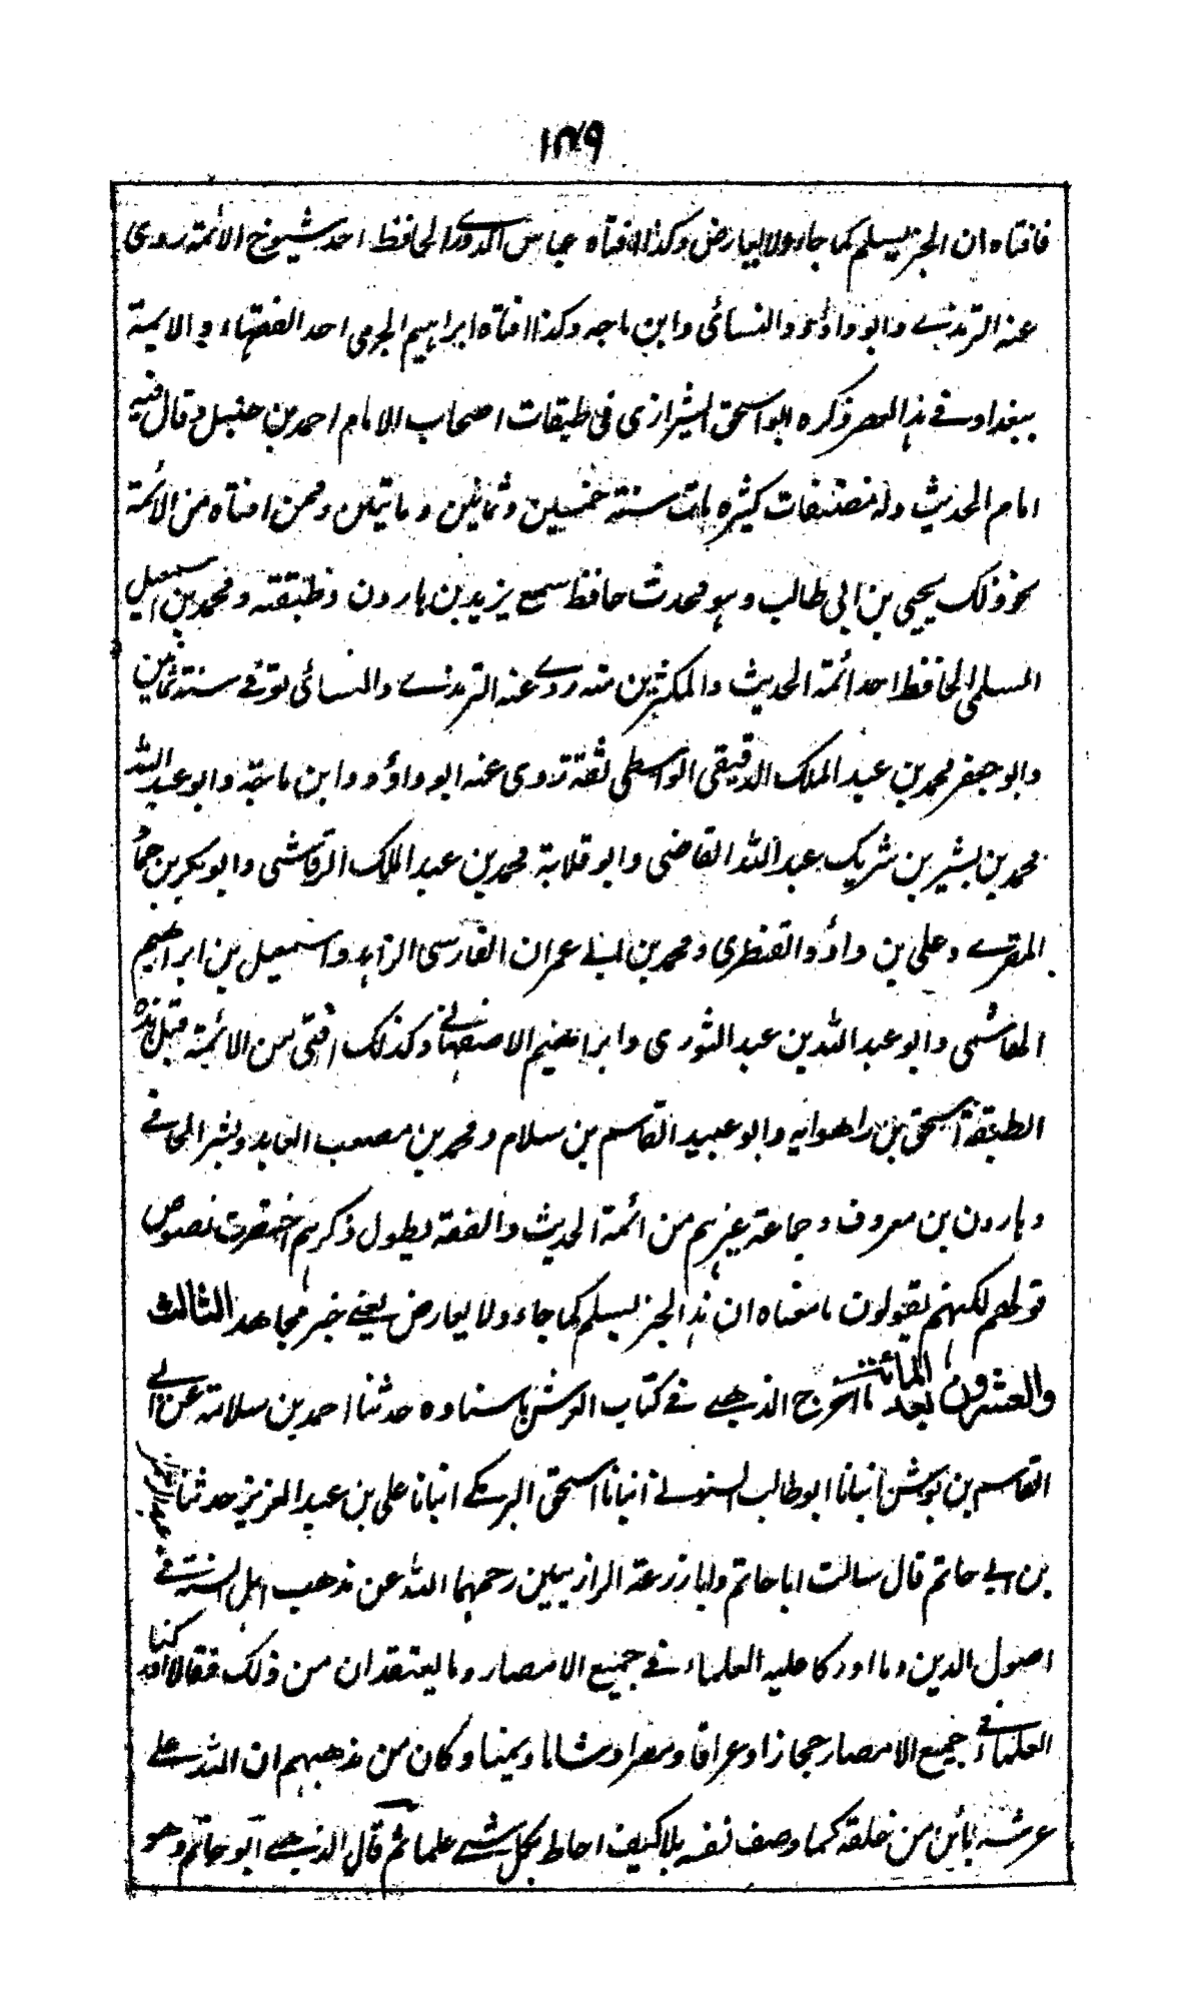 ١٤٩
فافتاه ان الخبر يسلم كما جاء ولا يعارض وكذا افتاه عباس الدوري الحافظ احد شيوخ الائمة روى
عنه الترمذي وابو داؤد والنسائى وابن ماجه وكذا افتاه ابراهيم الحربى احد الفقهاء والايمة
ببغداد في هذا العصر ذكره ابو اسحق الشيرازى فى طبقات اصحاب الامام احمد بن حنبل وقال فيه
امام الحديث وله مصنفات كثيره مات سنة خمسين وثمانين وماتين وممن افتاه من الائمة
نحو ذلك يحيى بن ابى طالب وهو محدث حافظ سمع يزيد بن هارون وطبقته ومحمد بن اسمعيل
السلمى الحافظ احد ائمة الحديث والمكثرين منه روى عنه الترمذي والنسائى توفي سنة ثمانين
وابو جعفر محمد بن عبد الملك الدقيقى الواسطى ثقة روى عنه ابو داؤد وابن ماجة وابو عبد الله
محمد بن بشير بن شريك عبد الله القاضى وابو قلابة محمد بن عبد الملك الرقاشى وابو بكر بن حماد
المقري وعلى بن داؤد القنطرى ومحمد بن ابي عمران الفارسى الزاهد واسمعيل بن ابراهيم
الهاشمى وابو عبد الله بن عبد النورى وابراهيم الاصفهاني وكذلك افتى من الائمة قبل هذه
الطبقة اسحق بن راهوايه وابو عبيد القاسم بن سلام ومحمد بن مصعب العابد وبشر الحافي
وهارون بن معروف وجماعة غيرهم من ائمة الحديث والفقه يطول ذكرهم اختصرت نصوص
قولهم لكنهم يقولون ما معناه ان هذا الخبر يسلم كما جاء ولا يعارض يعني خبر مجاهد الثالث
والعشرون بعد المائة ما اخرج الذهبي في كتاب العرش باسناده حدثنا احمد بن سلامة عن ابي
القاسم بن بوش انبانا ابو طالب اليوسفي انبانا اسحق البرمكي انبانا على بن عبد العزيز حدثنا عبد الرحمن
بن ابي حاتم قال سالت ابا حاتم وابا زرعة الرازيين رحمهما الله عن مذهب اهل السنة في
اصول الدين وما ادركا عليه العلماء في جميع الامصار وما يعتقدان من ذلك فقالا ادركنا
العلماء في جميع الامصار حجازا وعراقا ومصرا وشاما ويمنا وكان من مذهبهم ان الله على
عرشه بائن من خلقه كما وصف نفسه بلا كيف احاط بكل شي علما ثم قال الذهبي ابو حاتم وهو